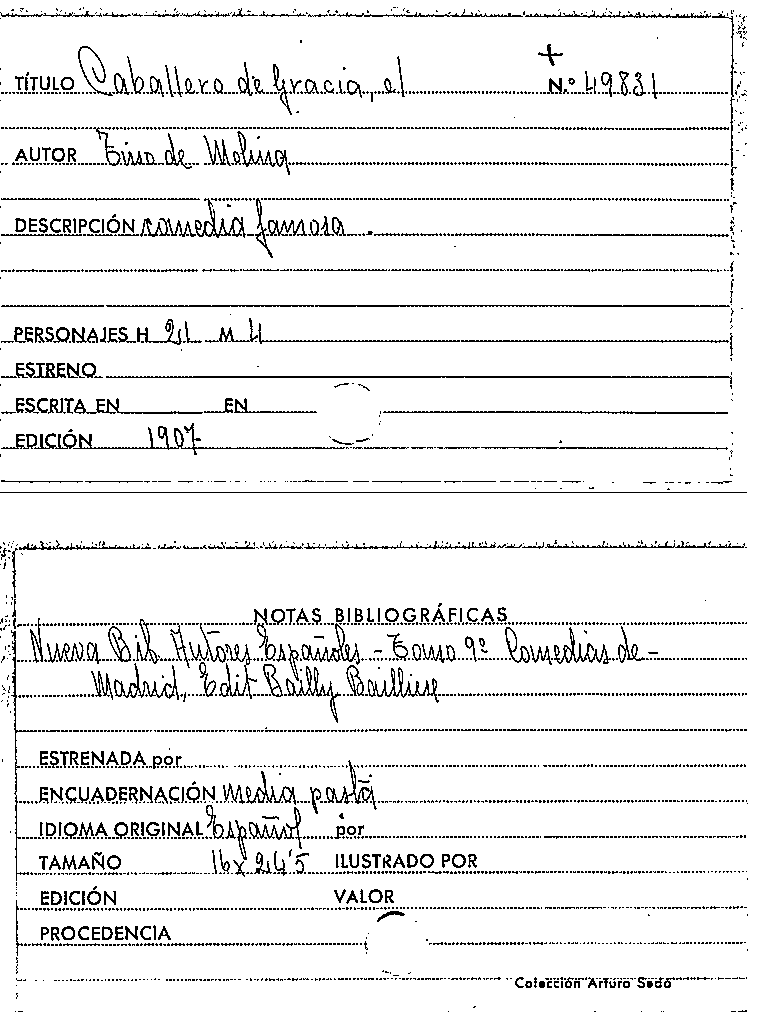 TÍTULO Caballero de Gracia, el N.º 49831
AUTOR Tirso de Molina
DESCRIPCIÓN comedia famosa.
PERSONAJES H 21 M 4
ESTRENO
ESCRITA EN EN
EDICIÓN 1907
NOTAS BIBLIOGRÁFICAS
Nueva Bib. Autores Españoles - Tomo 9º Comedias de -
Madrid, Edit Bailly Bailliere
ESTRENADA por
ENCUADERNACIÓN media pasta
IDIOMA ORIGINAL Español por
TAMAÑO 16x24'5 ILUSTRADO POR
EDICIÓN VALOR
PROCEDENCIA
Colección Arturo Sedó